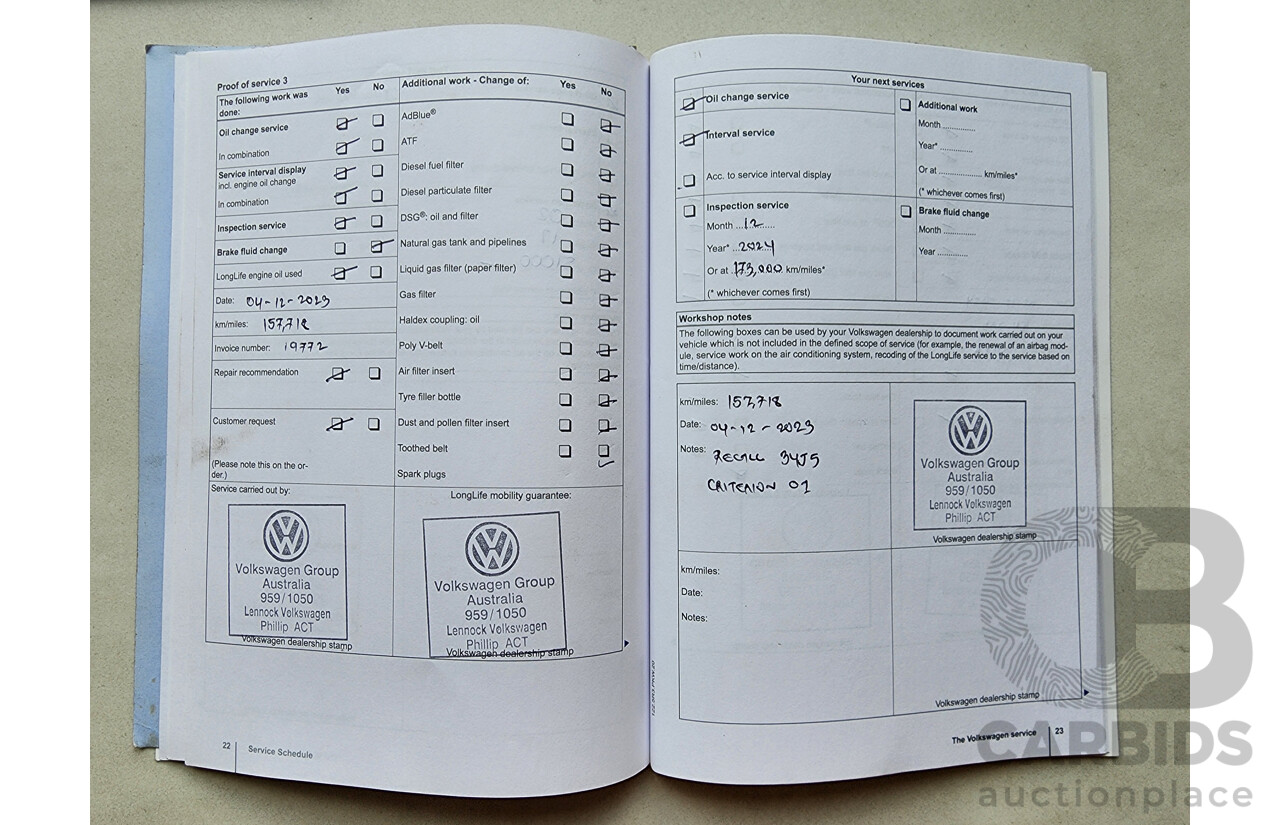 Proof of service 3
The following work was done:
Yes
No
Additional work - Change of:
Yes
No
Oil change service
In combination
Service interval display
incl. engine oil change
In combination
Inspection service
Brake fluid change
LongLife engine oil used
Date: 04-12-2023
km/miles: 157,718
Invoice number: 19772
Repair recommendation
Customer request
(Please note this on the or-
der.)
AdBlue®
ATF
Diesel fuel filter
Diesel particulate filter
DSG®: oil and filter
Natural gas tank and pipelines
Liquid gas filter (paper filter)
Gas filter
Haldex coupling: oil
Poly V-belt
Air filter insert
Tyre filler bottle
Dust and pollen filter insert
Toothed belt
Spark plugs
Service carried out by:
Volkswagen Group
Australia
959/1050
Lennock Volkswagen
Phillip ACT
Volkswagen dealership stamp
LongLife mobility guarantee:
Volkswagen Group
Australia
959/1050
Lennock Volkswagen
Phillip ACT
Volkswagen dealership stamp
22
Service Schedule
Your next services
Oil change service
Interval service
Acc. to service interval display
Inspection service
Month ...12......
Year* ..2024
Or at .173,000 km/miles*
(* whichever comes first)
Additional work
Month ..............
Year* ..............
Or at ................... km/miles*
(* whichever comes first)
Brake fluid change
Month ..............
Year ..............
Workshop notes
The following boxes can be used by your Volkswagen dealership to document work carried out on your
vehicle which is not included in the defined scope of service (for example, the renewal of an airbag mod-
ule, service work on the air conditioning system, recoding of the LongLife service to the service based on
time/distance).
km/miles: 157,718
Date: 04-12-2023
Notes: RECALL 34J5
CRITERION 01
Volkswagen Group
Australia
959/1050
Lennock Volkswagen
Phillip ACT
Volkswagen dealership stamp
km/miles:
Date:
Notes:
Volkswagen dealership stamp
The Volkswagen service
23
CB
CARBIDS
auctionplace